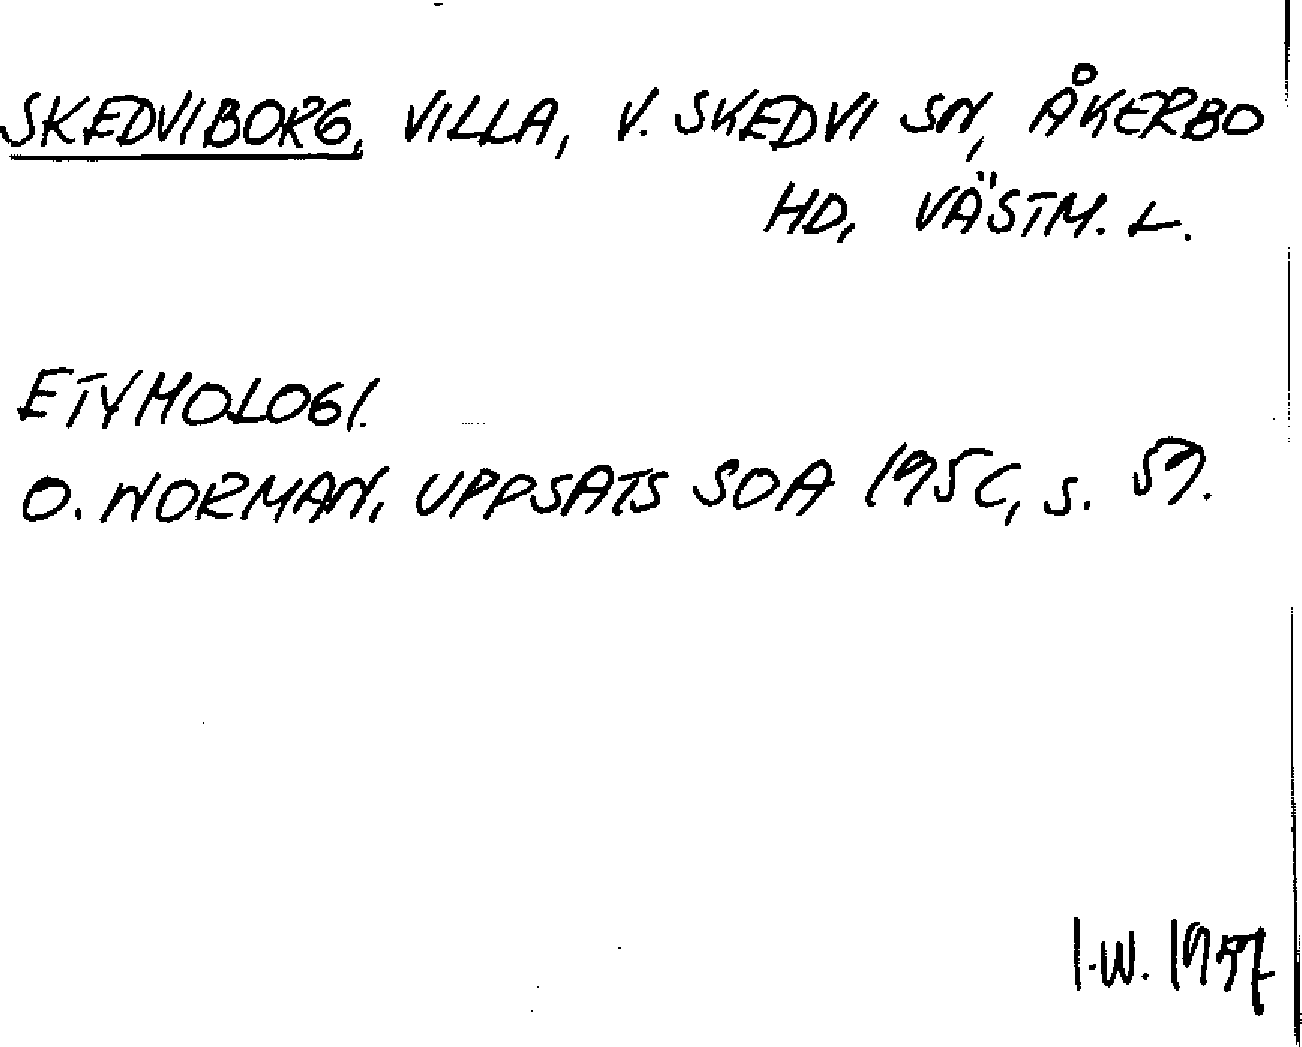 SKEDVIBORG, VILLA, V. SKEDVI SN, ÅKERBO
HD, VÄSTM. L.
ETYMOLOGI.
O. NORMAN, UPPSATS SOA s.
I.W. 1957